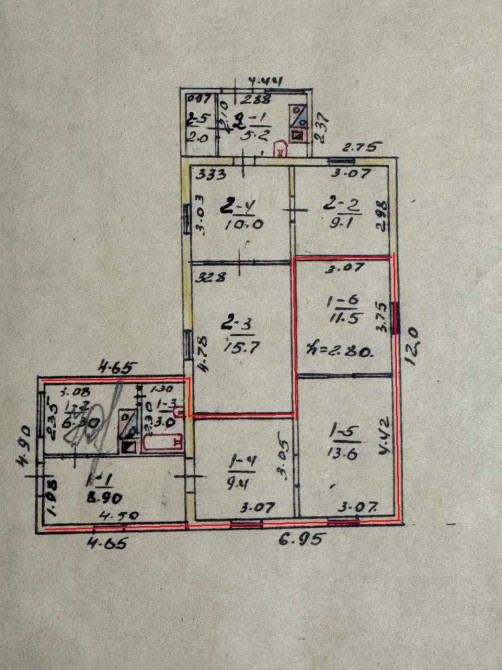 4.44
0.97
2.88
2.10
2-5
2.0
2-1
5.2
2.37
2.75
3.33
3.07
3.03
2-4
10.0
2-2
9.1
2.98
3.28
3.07
1-6
11.5
3.75
2-3
15.7
h=2.80.
4.78
12,0
4.65
3.08
1.30
2.35
1-2
6.30
2.30
1-3
3.0
4.90
1-5
13.6
4.42
1-4
9.4
3.05
1-1
8.90
1.98
4.50
3.07
3.07
4.65
6.95